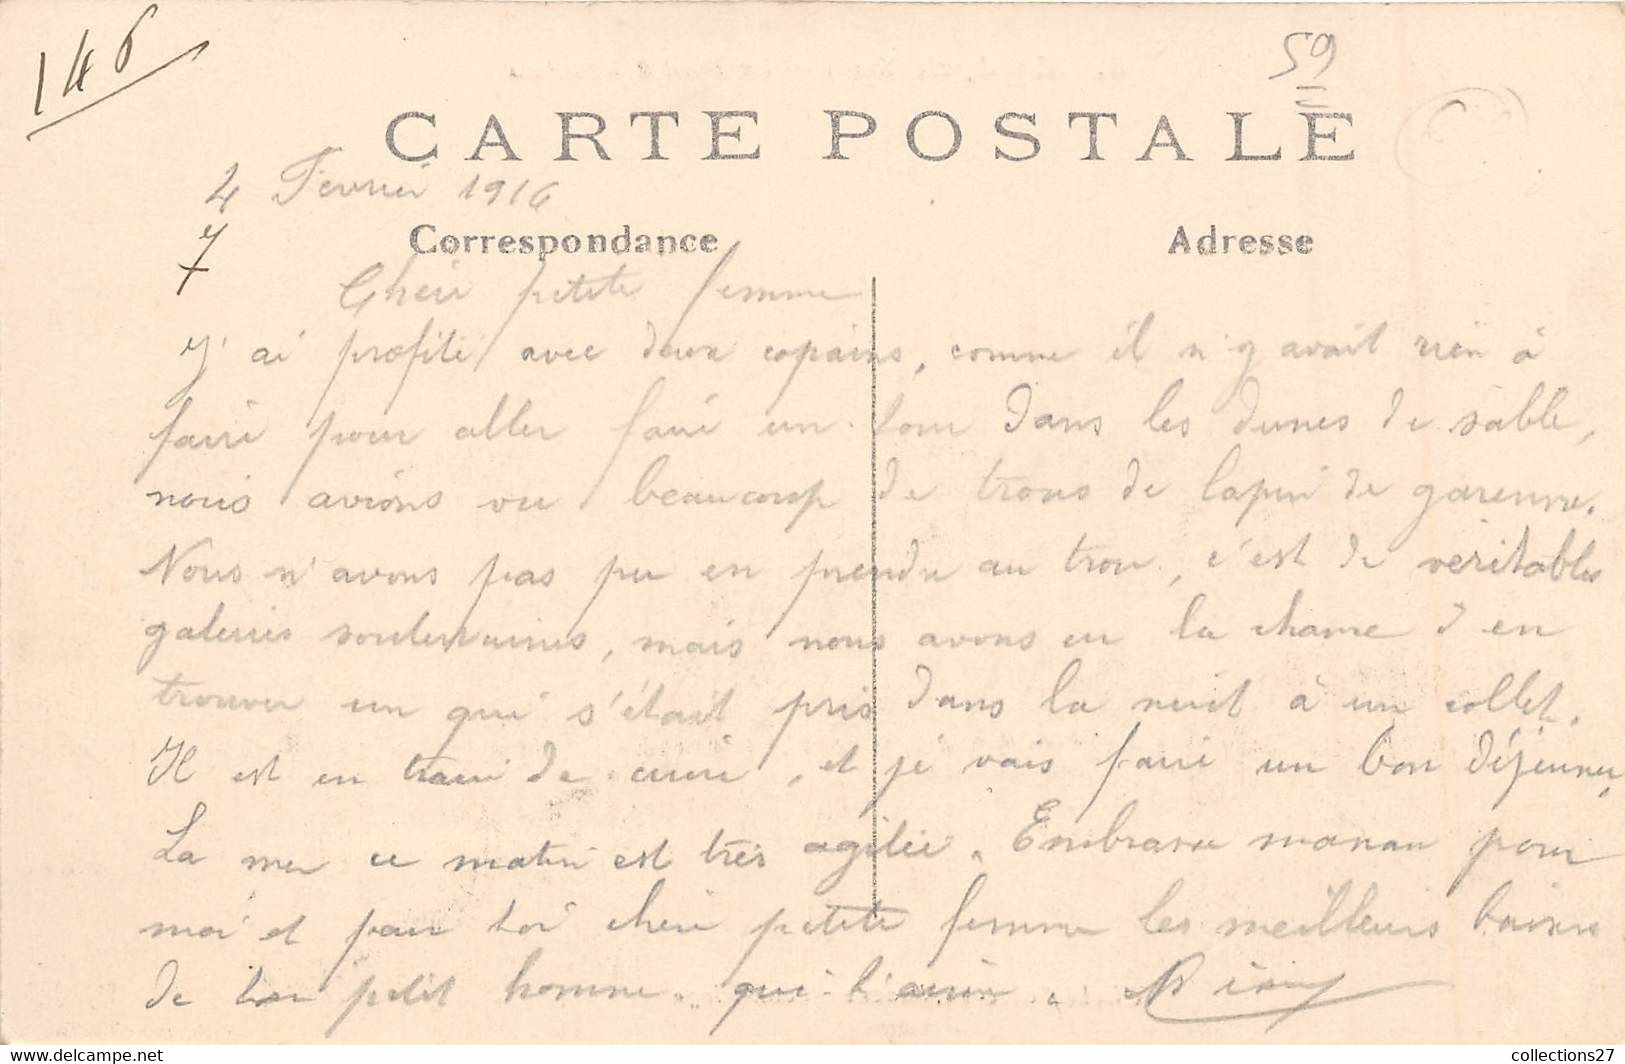 146
59
CARTE POSTALE
4 Fevrier 1916
7
Correspondance
Adresse
Chérie petite femme
J'ai profité avec deux copains, comme il n'y avait rien à
faire pour aller faire un tour dans les dunes de sable,
nous avions vu beaucoup de trous de lapin de garenne.
Nous n'avons pas pu en prendre au trou, c'est de véritables
galeries souterraines, mais nous avons eu la chance d'en
trouver un qui s'était pris dans la nuit à un collet.
Il est en train de cuire, et je vais faire un bon déjeuner,
La mer ce matin est très agitée. Embrasse maman pour
moi et pour toi chérie petite femme les meilleurs baisers
de ton petit homme qui t'aime.
collections27